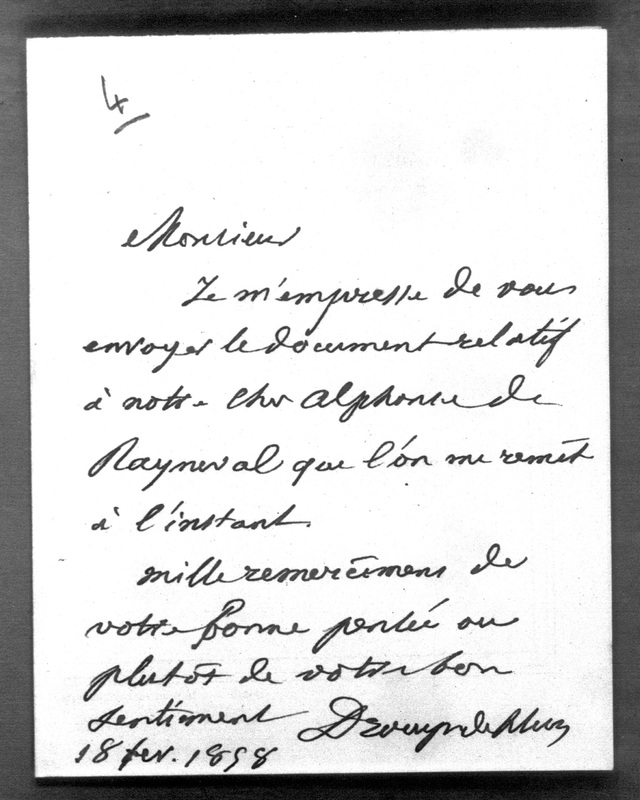 4
Monsieur
Je m'empresse de vous
envoyer le document relatif
à notre cher Alphonse de
Rayneval que l'on me remet
à l'instant.
mille remerciemens de
votre bonne pensée ou
plutôt de votre bon
sentiment Drouyn de Lhuys
18 fev. 1858